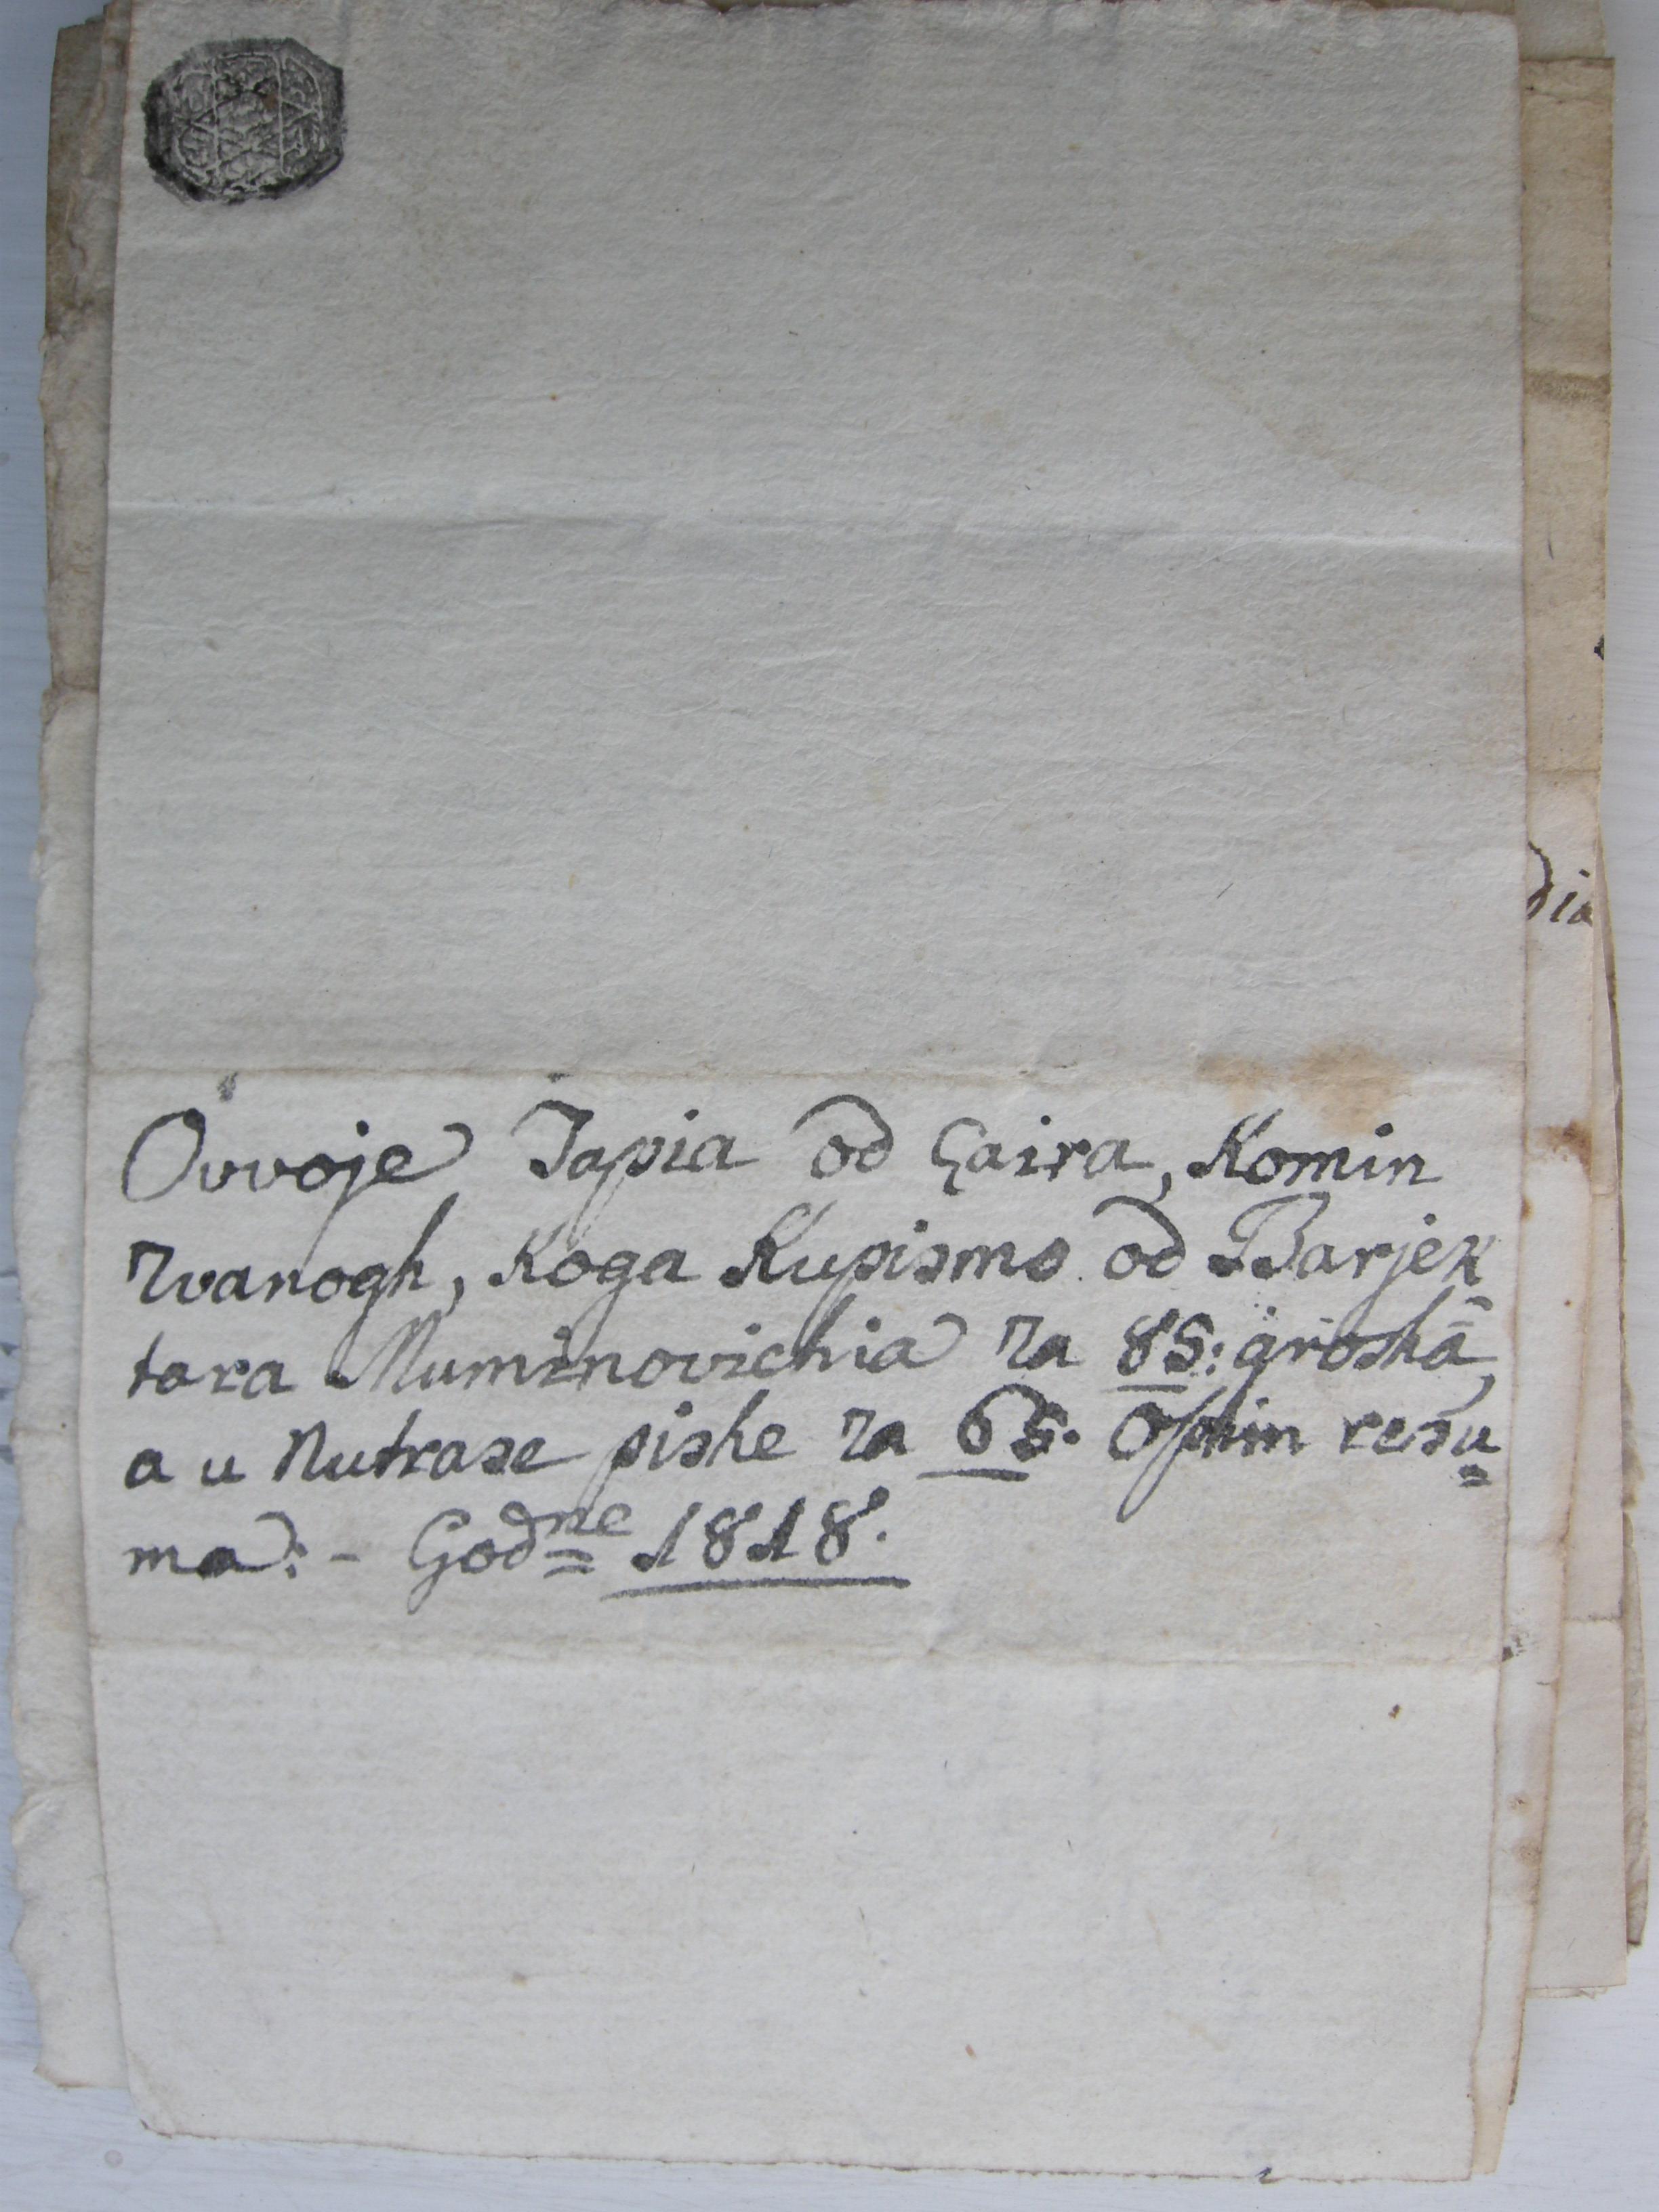 Ovvoje Tapia od Çaira, Komin
Zvanogh, Koga Kupismo od Barjek
tara Muminovichia za 85: groshâ,
a u Nutrase pishe za 65. Osim resu=
ma: - Godne 1818.
dia